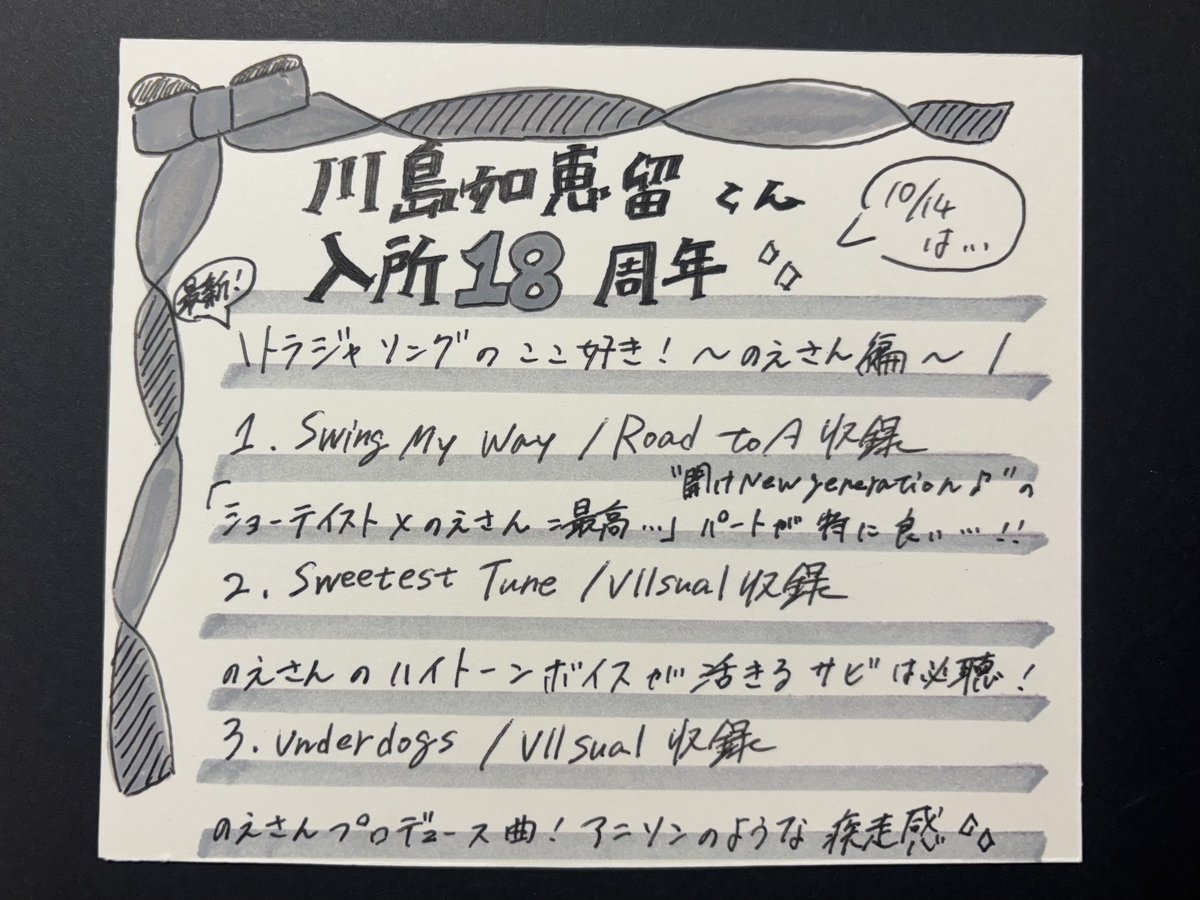 川島如恵留くん
入所18周年
10/14
は…
最新!
\トラジャソングのここ好き!〜のえさん編〜/
1. Swing My Way /Road to A 収録
"開けNew generation♪"の
「ショーテイスト×のえさん=最高…」パートが特に良い…!!
2. Sweetest Tune /VIIsual 収録
のえさんのハイトーンボイスが活きるサビは必聴!
3. Underdogs /VIIsual 収録
のえさんプロデュース曲!アニソンのような疾走感